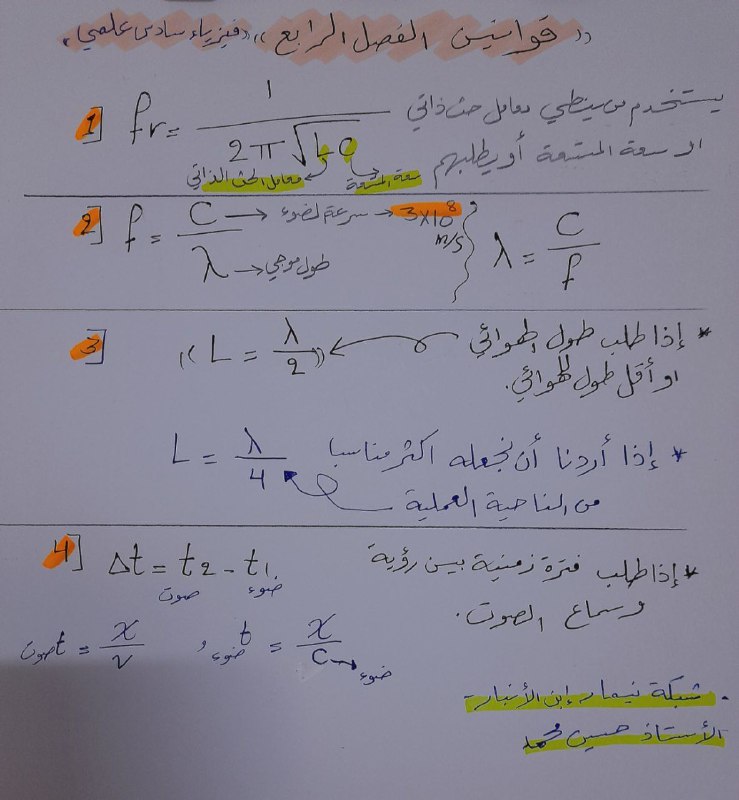 « قوانين الفصل الرابع » « فيزياء سادس علمي »
1] fr = 1 / 2π√LC يستخدم من ينطي معامل حث ذاتي
او سعة المتسعة أو يطلبهم
معامل الحث الذاتي سعة المتسعة
2] f = C / λ → سرعة لضوء → 3×10⁸ m/s λ = C / f
طول موجي
3] (( L = λ / 2 )) * إذا طلب طول الهوائي
او أقل طول للهوائي.
L = λ / 4 * إذا أردنا أن نجعله اكثر مناسبا
من الناحية العملية
4] Δt = t2 - t1 * إذا طلب فترة زمنية بين رؤية
صوت ضوء وسماع الصوت.
tصوت = x / v , tضوء = x / C → ضوء
. شبكة نيمار ابن الأنبار -
الأستاذ حسين محمد